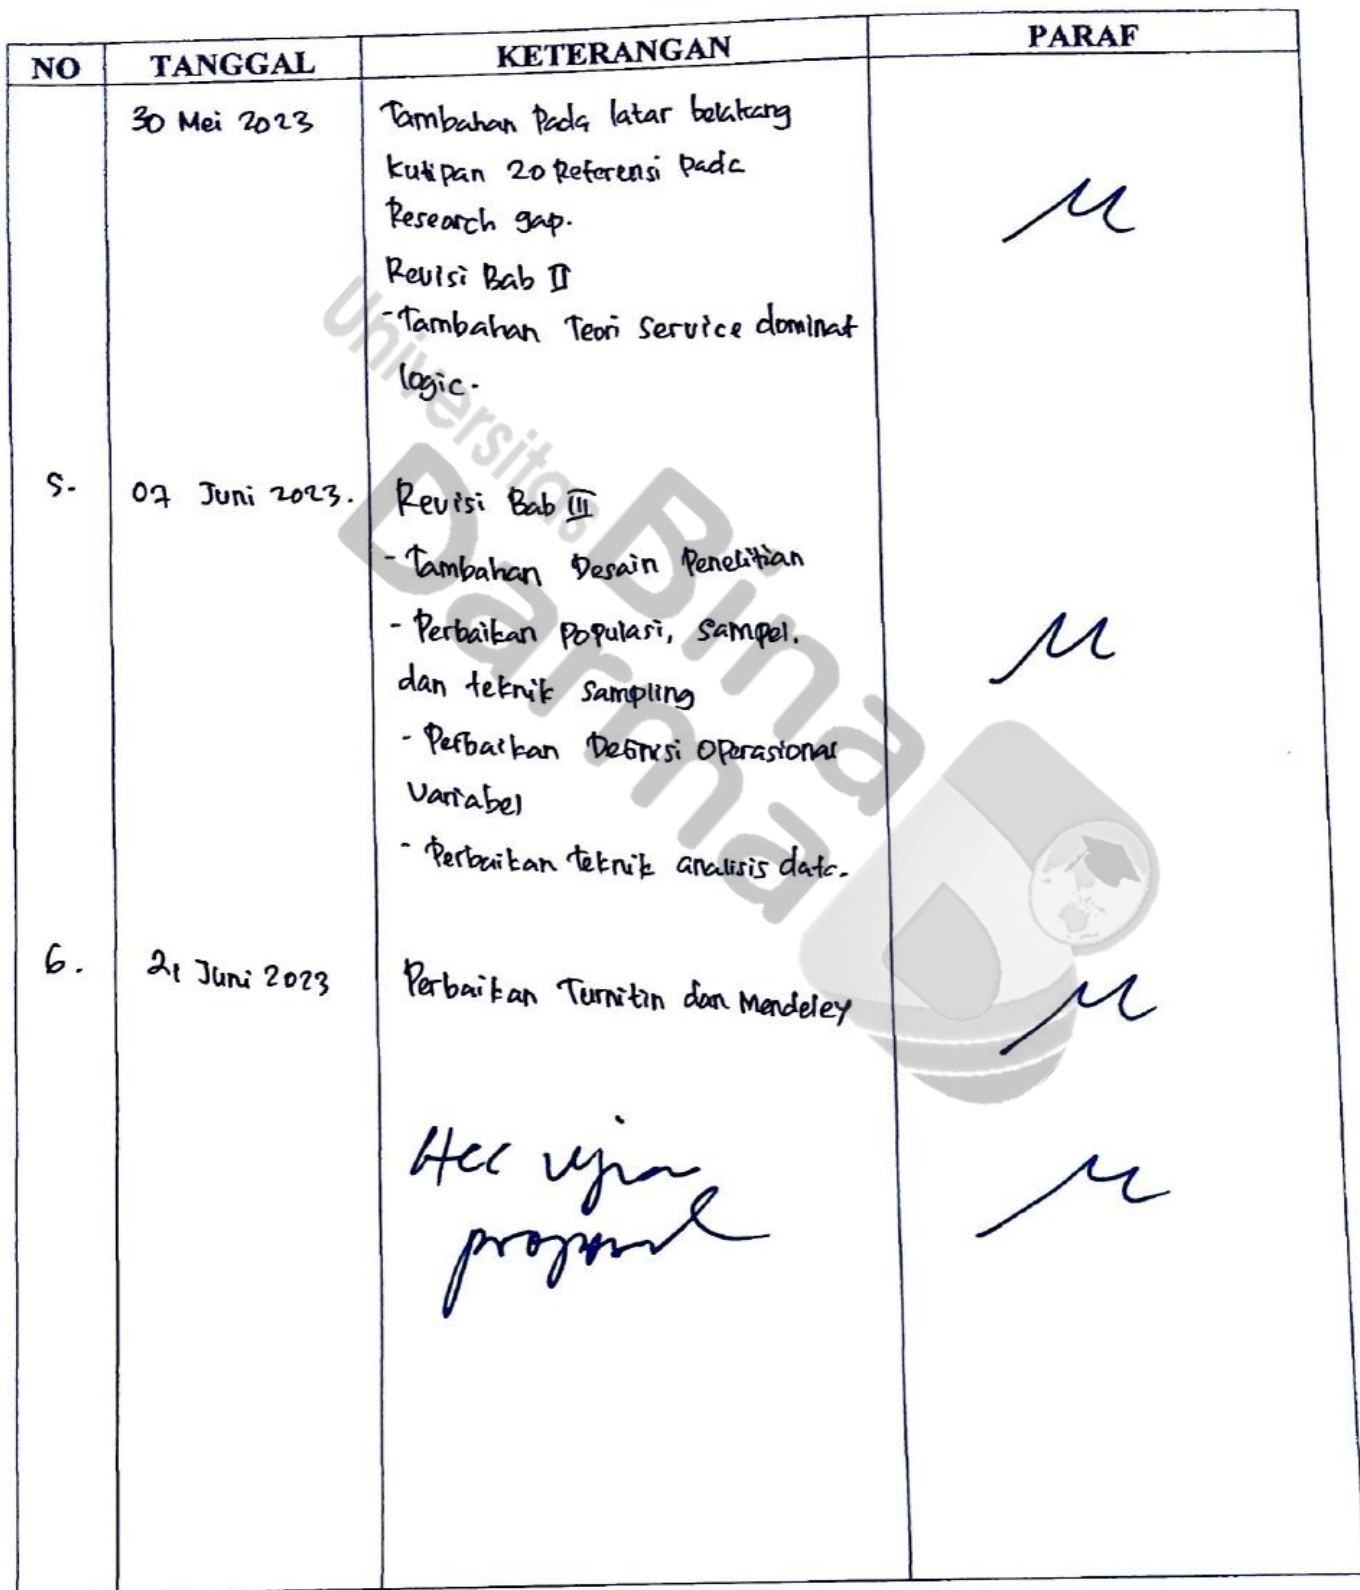 NO TANGGAL KETERANGAN PARAF
30 Mei 2023 Tambahan Pada latar belakang
Kutipan 20 Referensi Pada
Research gap.
Revisi Bab II
- Tambahan Teori Service dominat
logic.
5. 07 Juni 2023. Revisi Bab III
- Tambahan Desain Penelitian
- Perbaikan Populasi, Sampel.
dan teknik Sampling
- Perbaikan Definisi Operasional
Variabel
- Perbaikan teknik analisis data.
6. 21 Juni 2023 Perbaikan Turnitin dan Mendeley
Acc ujian
proposal
Universitas
Bina
Darma